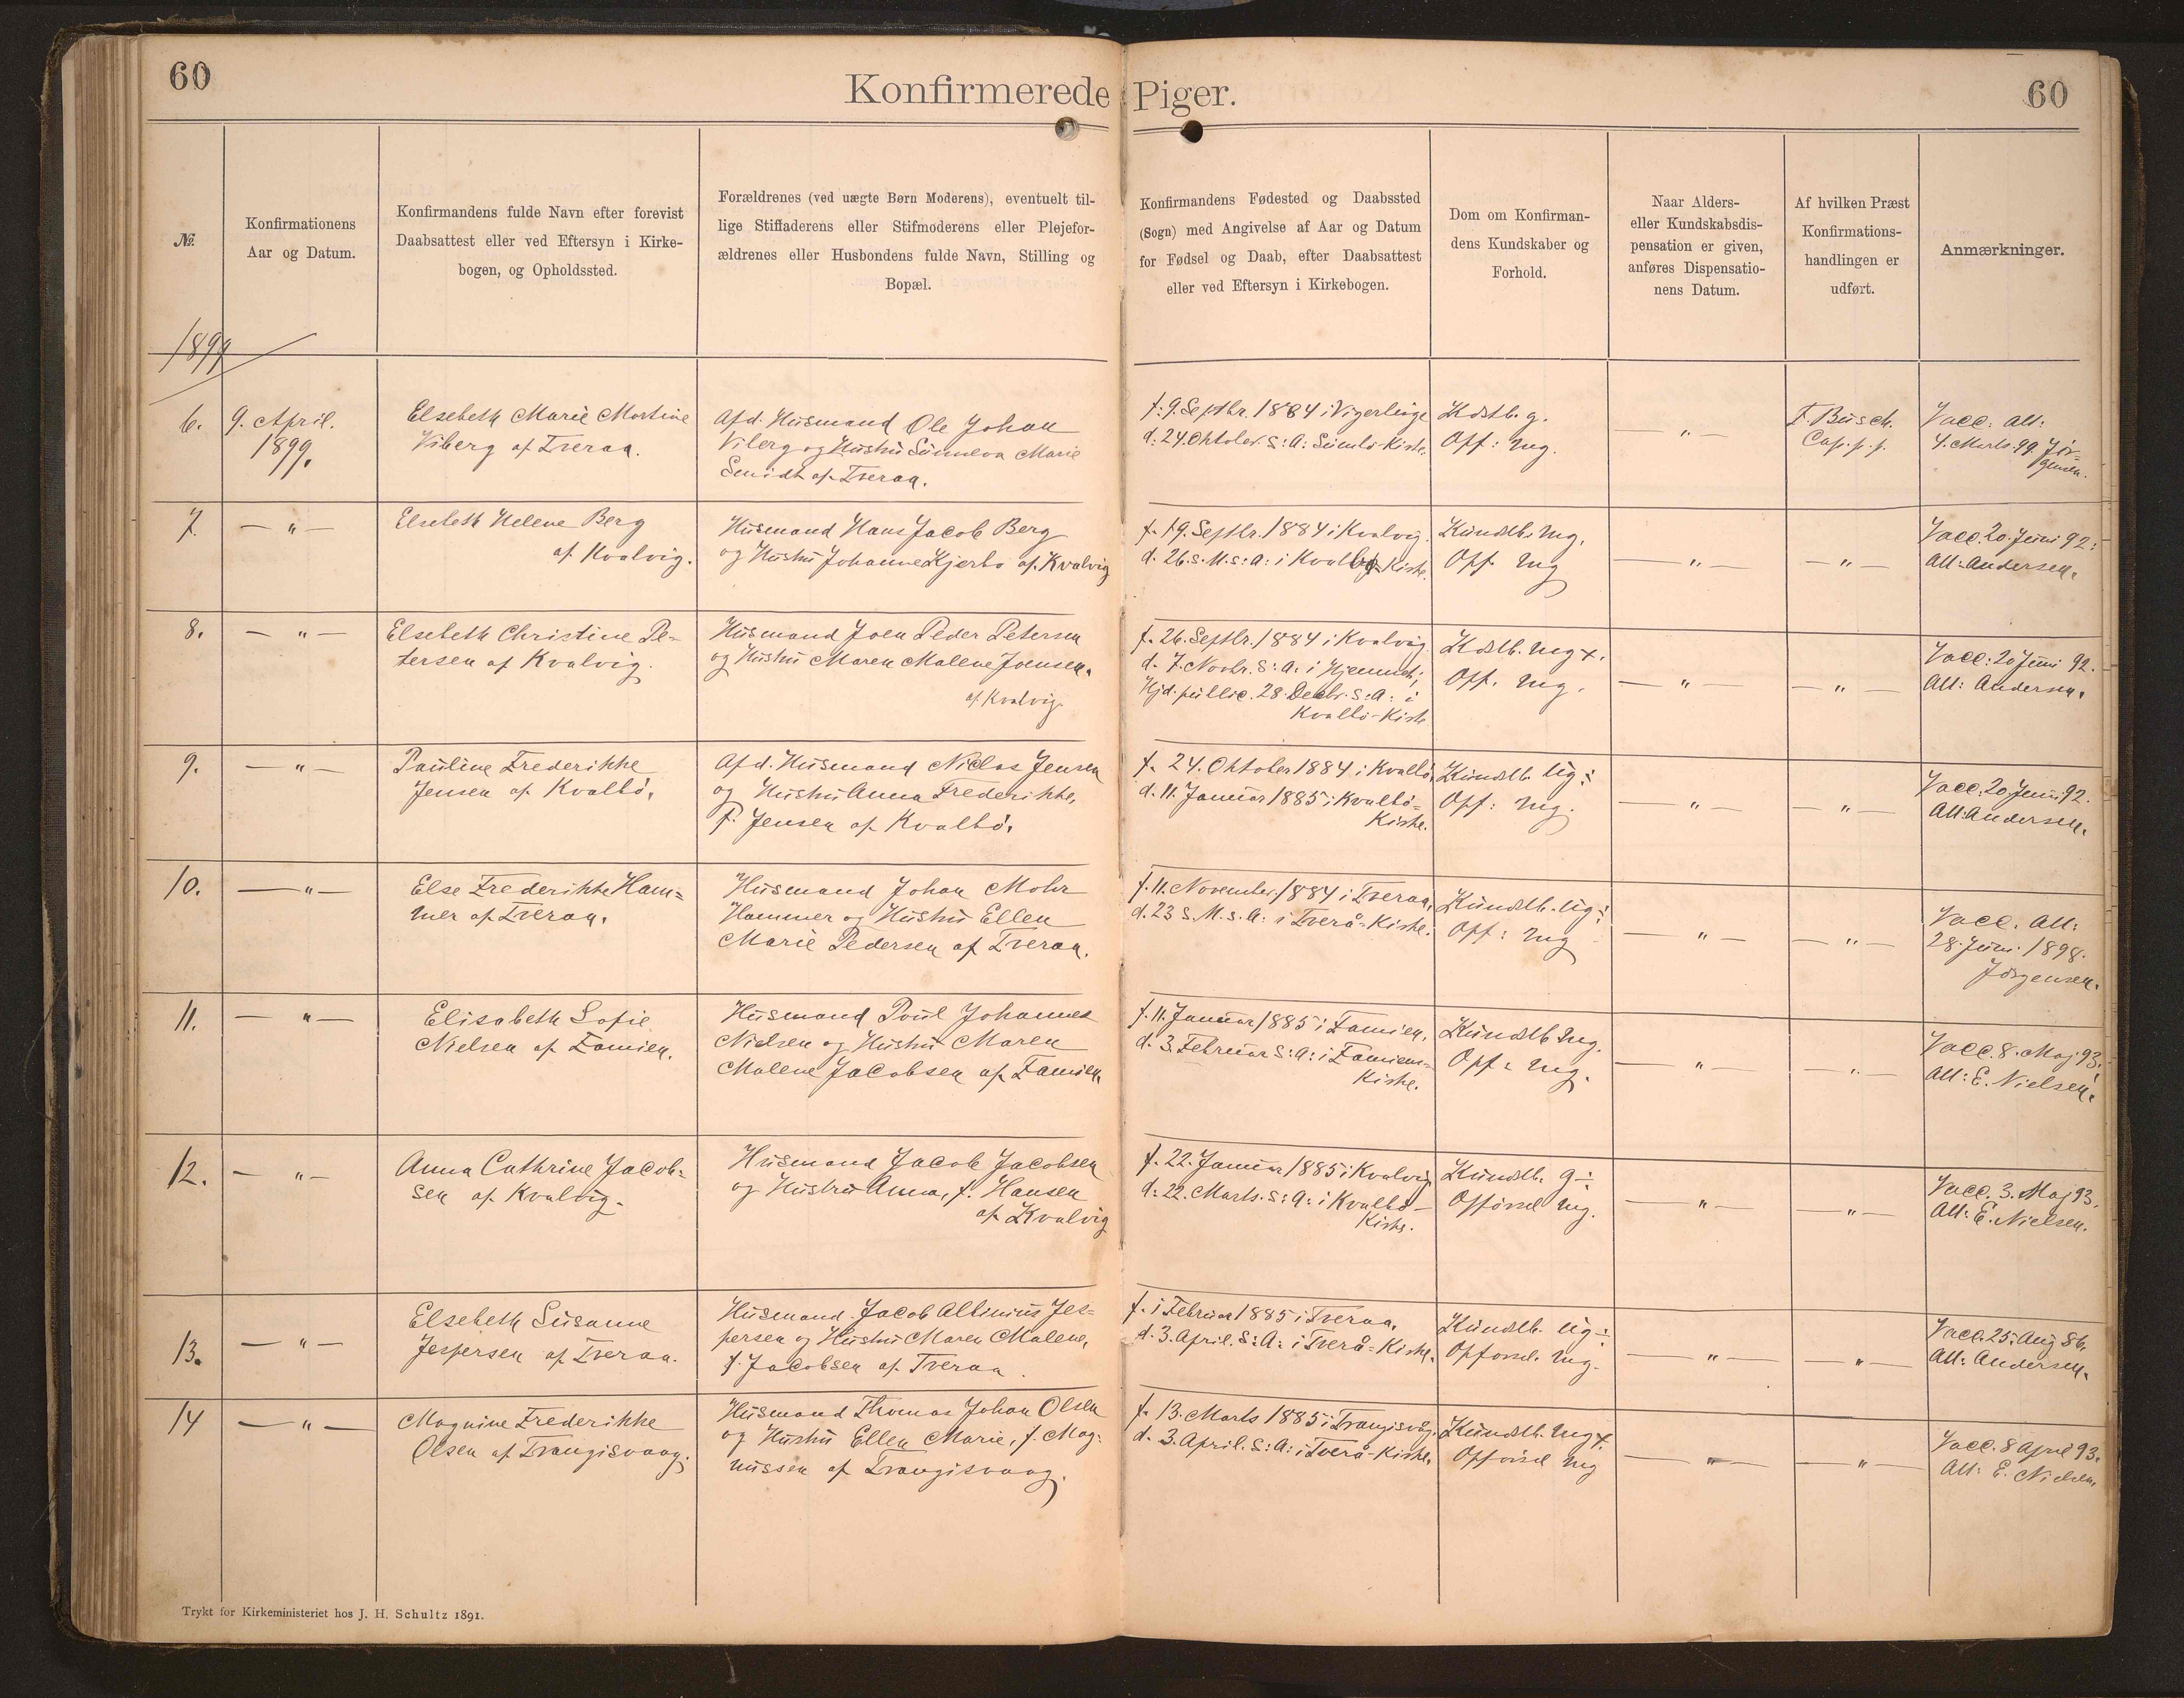 60
Konfirmerede Piger.
60
№.
Konfirmationens
Aar og Datum.
Konfirmandens fulde Navn efter forevist
Daabsattest eller ved Eftersyn i Kirke-
bogen, og Opholdssted.
Forældrenes (ved uægte Børn Moderens), eventuelt til-
lige Stiffaderens eller Stifmoderens eller Plejefor-
ældrenes eller Husbondens fulde Navn, Stilling og
Bopæl.
Konfirmandens Fødested og Daabssted
(Sogn) med Angivelse af Aar og Datum
for Fødsel og Daab, efter Daabsattest
eller ved Eftersyn i Kirkebogen.
Dom om Konfirman-
dens Kundskaber og
Forhold.
Naar Alders-
eller Kundskabsdis-
pensation er given,
anføres Dispensatio-
nens Datum.
Af hvilken Præst
Konfirmations-
handlingen er
udført.
Anmærkninger.
1899
6.
9. April.
1899.
Elsebeth Marie Mortine
Viberg af Tveraa.
Afd. Husmand Ole Johan
Viberg og Hustru Sunneva Marie
Smidt af Tveraa.
f: 9. Septbr. 1884 i
d: 24. Oktober. s: A: Sumbø-Kirke.
Kdskb. g.
Opf: mg.
— " —
F. Busch.
Cap. p. p.
Vacc: Att:
4. Marts. 99. Jør-
gensen.
7.
— " —
Elsebeth Helene Berg
af Kvalvig.
Husmand Hans Jacob Berg
og Hustru Johanne Kjerbo af Kvalvig
f. 19. Septbr. 1884 i Kvalvig.
d. 26. s. M. s: A: i Kvalbø Kirke.
Kundskb. mg.
Opf. mg
— " —
— " —
Vacc. 20. Juni 92:
Att: Andersen.
8.
— " —
Elsebeth Christine Pe-
tersen af Kvalvig.
Husmand Joen Peder Petersen
og Hustru Maren Malene Joensen.
af Kvalvig.
f. 26. Septbr. 1884 i Kvalvig.
d. 7. Novbr. s: A: i Hjemmet;
Hjd. public. 28. Decbr. s: A: i
Kvalbø-Kirke
Kdskb. mg x.
Opf. mg.
— " —
— " —
Vacc: 20 Juni 92.
Att: Andersen.
9.
— " —
Pauline Frederikke
Jensen af Kvalbø.
Afd. Husmand Niclas Jensen
og Hustru Anna Frederikke,
f. Jensen af Kvalbø.
f. 24. Oktober 1884 i Kvalbø,
d. 11. Januar 1885 i Kvalbø-
Kirke.
Kundskb. ug÷
Opf: mg.
— " —
— " —
Vacc: 20. Juni 92.
Att: Andersen.
10.
— " —
Else Frederikke Ham-
mer af Tveraa.
Husmand Johan Mohr
Hammer og Hustru Ellen
Marie Pedersen af Tveraa.
f. 11. November. 1884 i Tveraa,
d. 23 s. M. s. A: i Tverå-Kirke.
Kundskb. ug÷
Opf: mg
— " —
— " —
Vacc. Att:
28. Juni. 1898.
Jörgensen.
11.
— " —
Elisabeth Sofie
Nielsen af Famien.
Husmand Poul Johannes
Nielsen og Hustru Maren
Malene Jacobsen af Famien.
f. 11. Januar 1885 i Famien.
d. 3. Februar s: A: i Famiens-
Kirke.
Kundskb mg.
Opf: mg.
— " —
— " —
Vacc. 8. Maj 93.
Att: E. Nielsen.
12.
— " —
Anna Cathrine Jacob-
sen af Kvalvig.
Husmand Jacob Jacobsen
og Hustru Anna, f. Hansen
af Kvalvig
f. 22. Januar 1885 i Kvalvig
d: 22. Marts. s: A: i Kvalbø-
Kirke.
Kundskb. g÷
Opførsel mg.
— " —
— " —
Vacc. 3. Maj 93.
Att: E. Nielsen.
13.
— " —
Elsebeth Susanne
Jespersen af Tveraa.
Husmand. Jacob Albinius Jes-
persen og Hustru Maren Malene,
f. Jacobsen af Tveraa.
f. 1 Februar 1885 i Tveraa.
d. 3. April. s: A: i Tverå-Kirke.
Kundskb. ug÷
Opførsel. mg.
— " —
— " —
Vacc. 25. Aug 86.
Att: Andersen.
14
— " —
Magnine Frederikke
Olsen af Trangisvaag.
Husmand Thomas Johan Olsen
og Hustru Ellen Marie, f. Mag-
nussen af Trangisvaag.
f. 13. Marts 1885 i Trangisvåg.
d. 3. April. s: A: i Tverå-Kirke.
Kundskb. mg x.
Opførsel mg
— " —
— " —
Vacc. 8 April 93.
Att: E. Nielsen.
Trykt for Kirkeministeriet hos J. H. Schultz 1891.